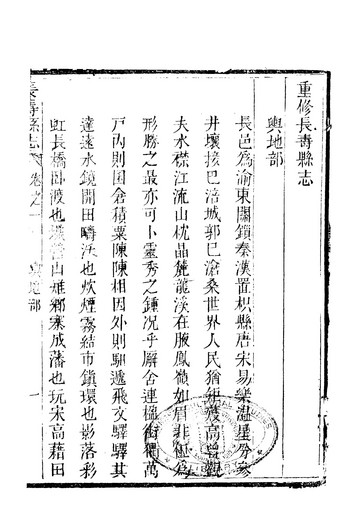 重修長壽縣志
輿地部
長邑爲渝東關鎖秦漢置枳縣唐宋易樂溫星分參
井壤接巴涪城郭巳滄桑世界人民猶矩矱高曾觀
夫水襟江流山枕晶麓龍溪在腋鳳嶺如眉非極爲
形勝之最亦可卜靈秀之鍾況乎廨舍連楹街獨萬
戸內則囯倉積粟陳陳相因外則馹遞飛文驛驛其
達遠水鏡開田疇沃也炊煙霧結市鎮環也影落彩
虹長橋卧渡也 山雄鄉寨成藩也玩宋高藉田
長壽縣志 卷之一 輿地部 一